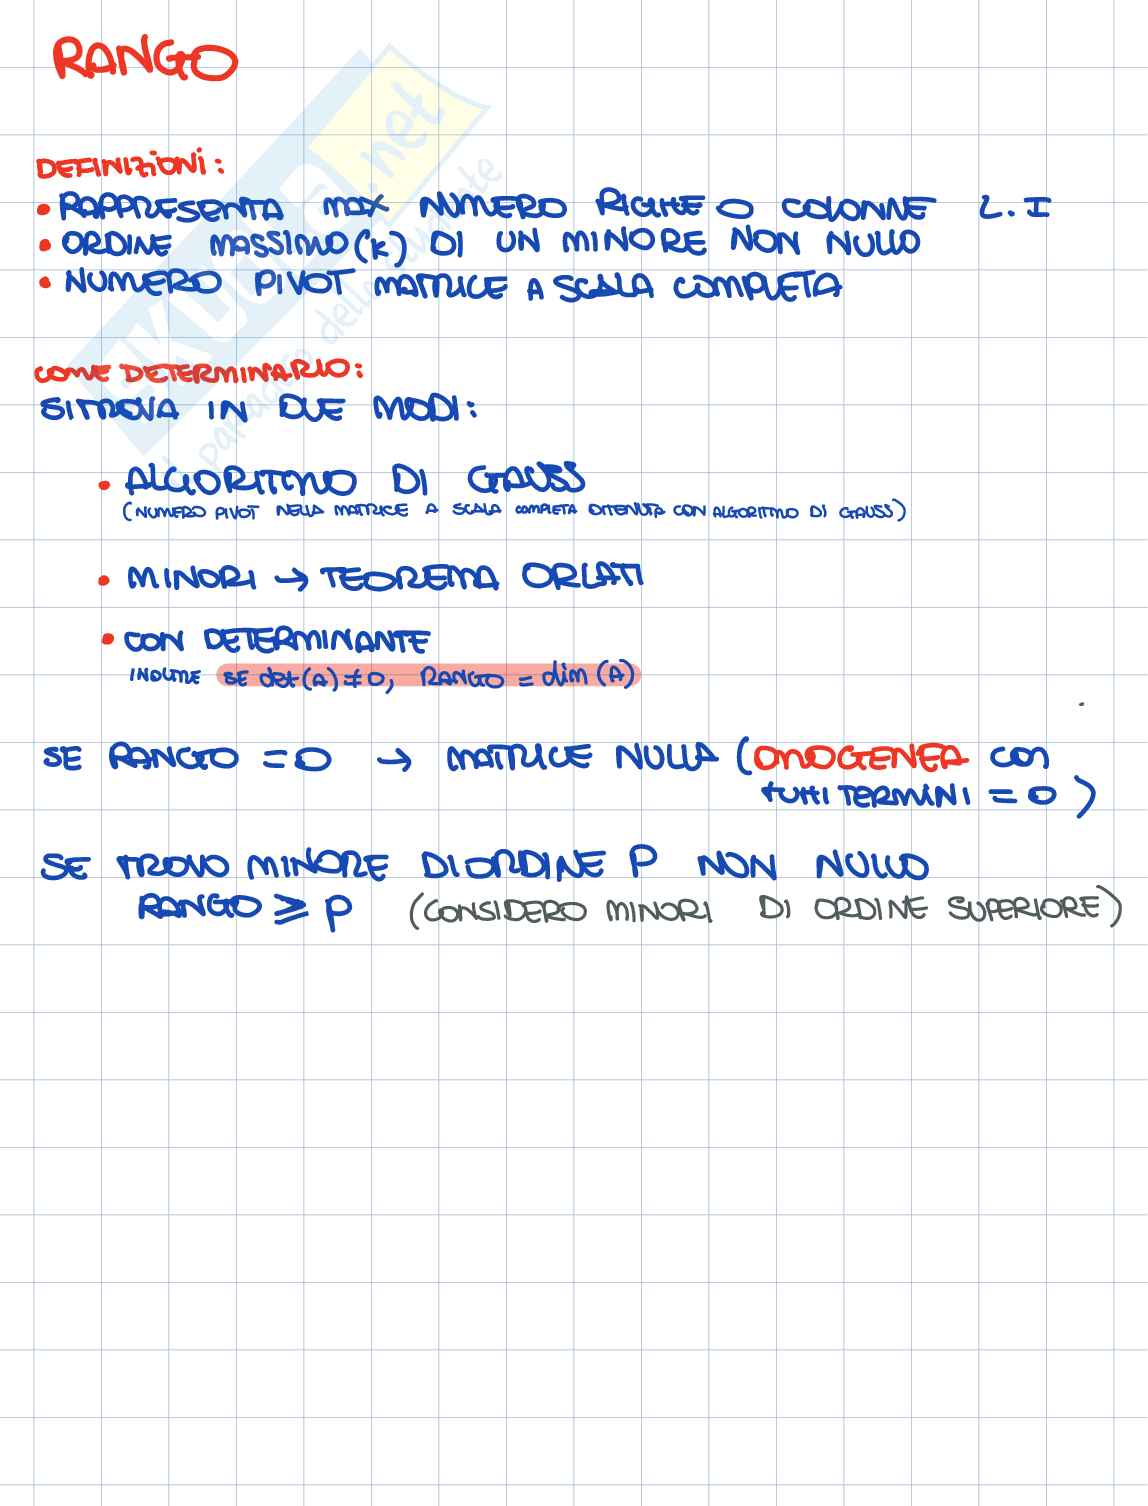 RANGO
DEFINIZIONI:
• RAPPRESENTA MAX NUMERO RIGHE O COLONNE L.I
• ORDINE MASSIMO (K) DI UN MINORE NON NULLO
• NUMERO PIVOT MATRICE A SCALA COMPLETA
COME DETERMINARLO:
SI TROVA IN DUE MODI:
• ALGORITMO DI GAUSS
(NUMERO PIVOT NELLA MATRICE A SCALA COMPLETA OTTENUTA CON ALGORITMO DI GAUSS)
• MINORI → TEOREMA ORLATI
• CON DETERMINANTE
INOLTRE SE det(A)≠0, RANGO = dim(A)
SE RANGO = 0 → MATRICE NULLA (OMOGENEA CON
TUTTI TERMINI = 0)
SE TROVO MINORE DI ORDINE P NON NULLO
RANGO ⩾ P (CONSIDERO MINORI DI ORDINE SUPERIORE)
SKUOLA.net